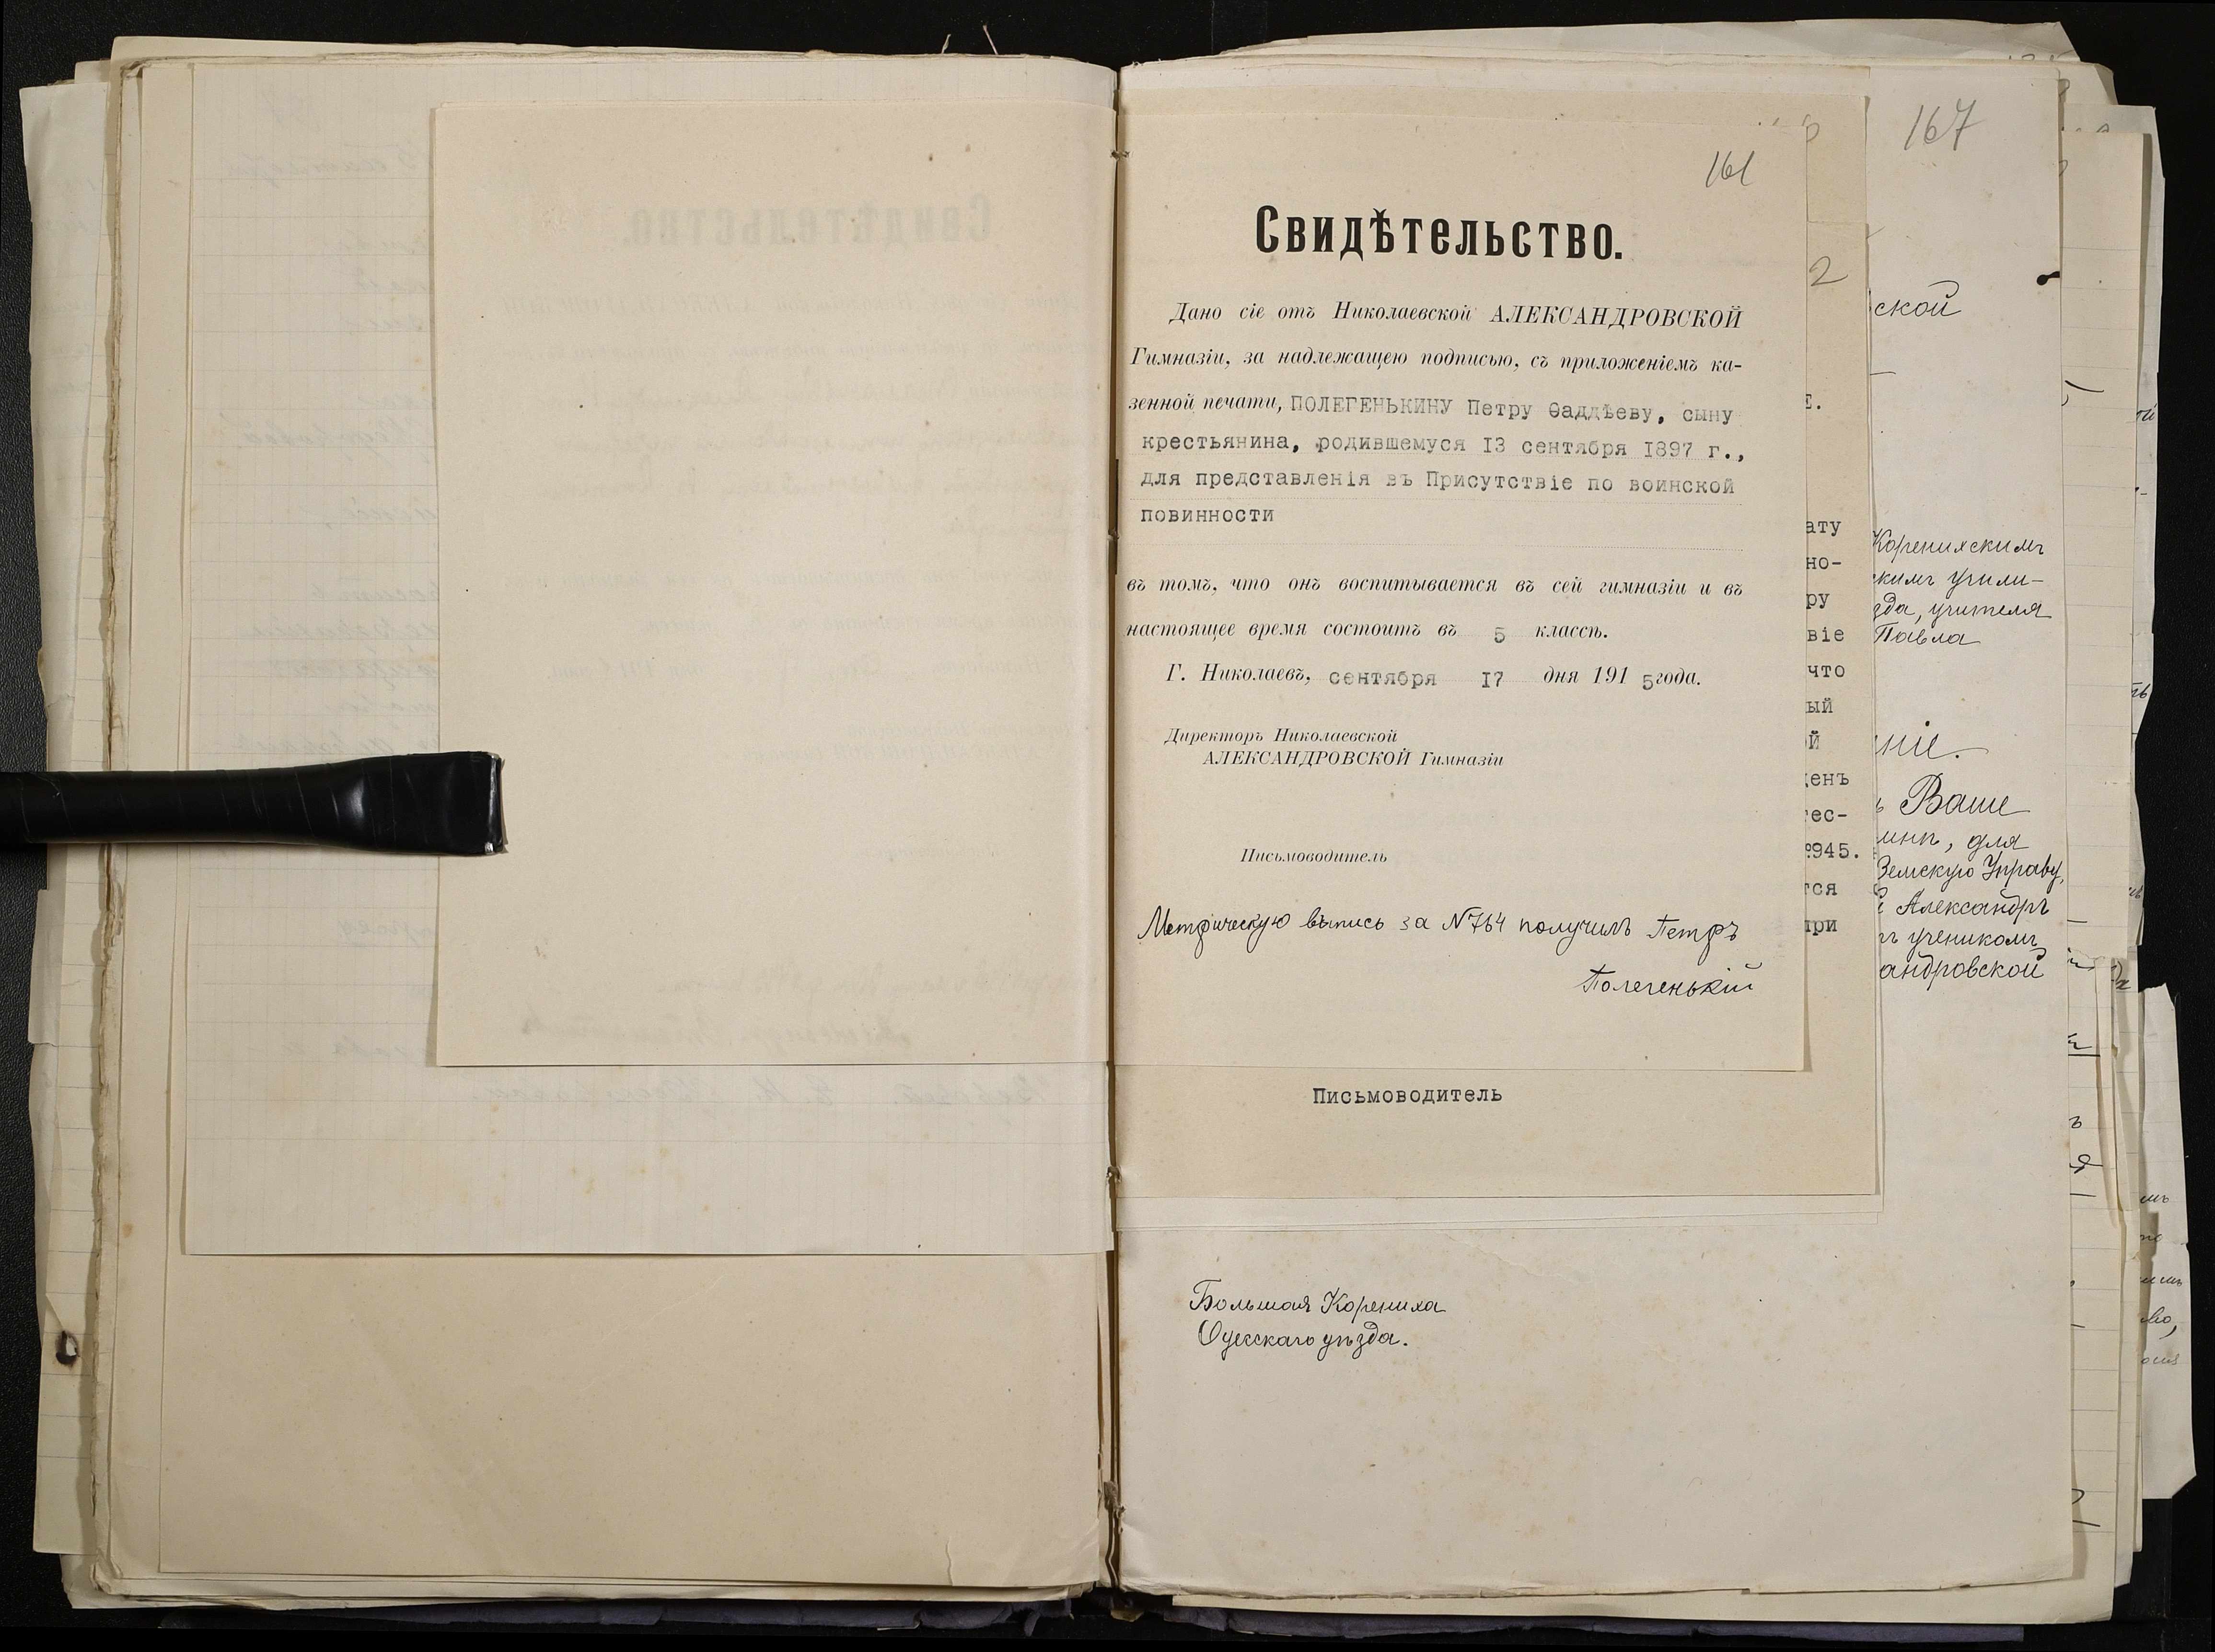 161
Свидѣтельство.
Дано сіе отъ Николаевской АЛЕКСАНДРОВСКОЙ
Гимназіи, за надлежащею подписью, съ приложеніемъ ка-
зенной печати, ПОЛЕГЕНЬКИНУ Петру Ѳаддѣеву, сыну
крестьянина, родившемуся 13 сентября 1897 г.,
для представленія въ Присутствіе по воинской
повинности
въ томъ, что онъ воспитывается въ сей гимназіи и въ
настоящее время состоитъ въ 5 классѣ.
Г. Николаевъ, сентября 17 дня 1915 года.
Директоръ Николаевской
АЛЕКСАНДРОВСКОЙ Гимназіи
Письмоводитель
Метрическую выпись за №764 получилъ Петръ
Полегенькій
Письмоводитель
Большая Корениха
Одесскаго уѣзда.
2
Е.
ату
но-
ру
віе
что
ый
й
денъ
тес-
№945.
тся
при
167
ской
Коренихскимъ
скимъ учили-
зда, учителя
Павла
ніе.
ъ Ваше
для
Земскую Управу,
Александръ
ъ ученикомъ
андровской